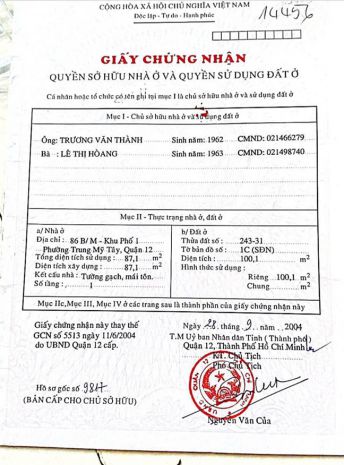 CỘNG HÒA XÃ HỘI CHỦ NGHĨA VIỆT NAM
Độc lập - Tự do - Hạnh phúc
14456
GIẤY CHỨNG NHẬN
QUYỀN SỞ HỮU NHÀ Ở VÀ QUYỀN SỬ DỤNG ĐẤT Ở
Cá nhân hoặc tổ chức có tên ghi tại mục I là chủ sở hữu nhà ở và sử dụng đất ở
Mục I - Chủ sở hữu nhà ở và sử dụng đất ở
Ông: TRƯƠNG VĂN THÀNH Sinh năm: 1962 CMND: 021466279
Bà : LÊ THỊ HÒANG Sinh năm: 1963 CMND: 021498740
Mục II - Thực trạng nhà ở, đất ở
a/ Nhà ở
Địa chỉ : 86 B/M - Khu Phố 1
Phường Trung Mỹ Tây, Quận 12
Tổng diện tích sử dụng : 87,1 m2
Diện tích xây dựng : 87,1 m2
Kết cấu nhà : Tường gạch, mái tôn.
Số tầng : 1
b/ Đất ở
Thửa đất số : 243-31
Tờ bản đồ số : 1C (SĐN)
Diện tích : 100,1 m2
Hình thức sử dụng :
Riêng 100,1 m2
Chung m2
Mục IIc, Mục III, Mục IV ở các trang sau là thành phần của giấy chứng nhận này
Giấy chứng nhận này thay thế
GCN số 5513 ngày 11/6/2004
do UBND Quận 12 cấp.
Hồ sơ gốc số 9817
(BẢN CẤP CHO CHỦ SỞ HỮU)
Ngày 28 tháng 9 năm 2004
T.M Uỷ ban Nhân dân Tỉnh ( Thành phố)
Quận 12, Thành Phố Hồ Chí Minh
KT. Chủ Tịch
Phó Chủ Tịch
Nguyễn Văn Của